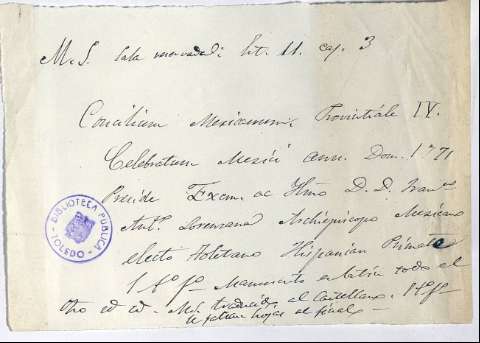 M. S. Sala reservada: Est. 11. caj. 3
Concilium Mexicanum Provintiale IV.
Celebratum Mexici ann. Dom. 1771
Preside Exem. ac Ilmo D. D. Franco
Ant. Lorenzana Archiepiscopo Mexicano
electo Toletano Hispanian Primate
1 to fo Manuscrito en latin todo el
Otro id id. M.S. traducido al Castellano. 1 to fo
le faltan hojas al final
BIBLIOTECA PÚBLICA
TOLEDO